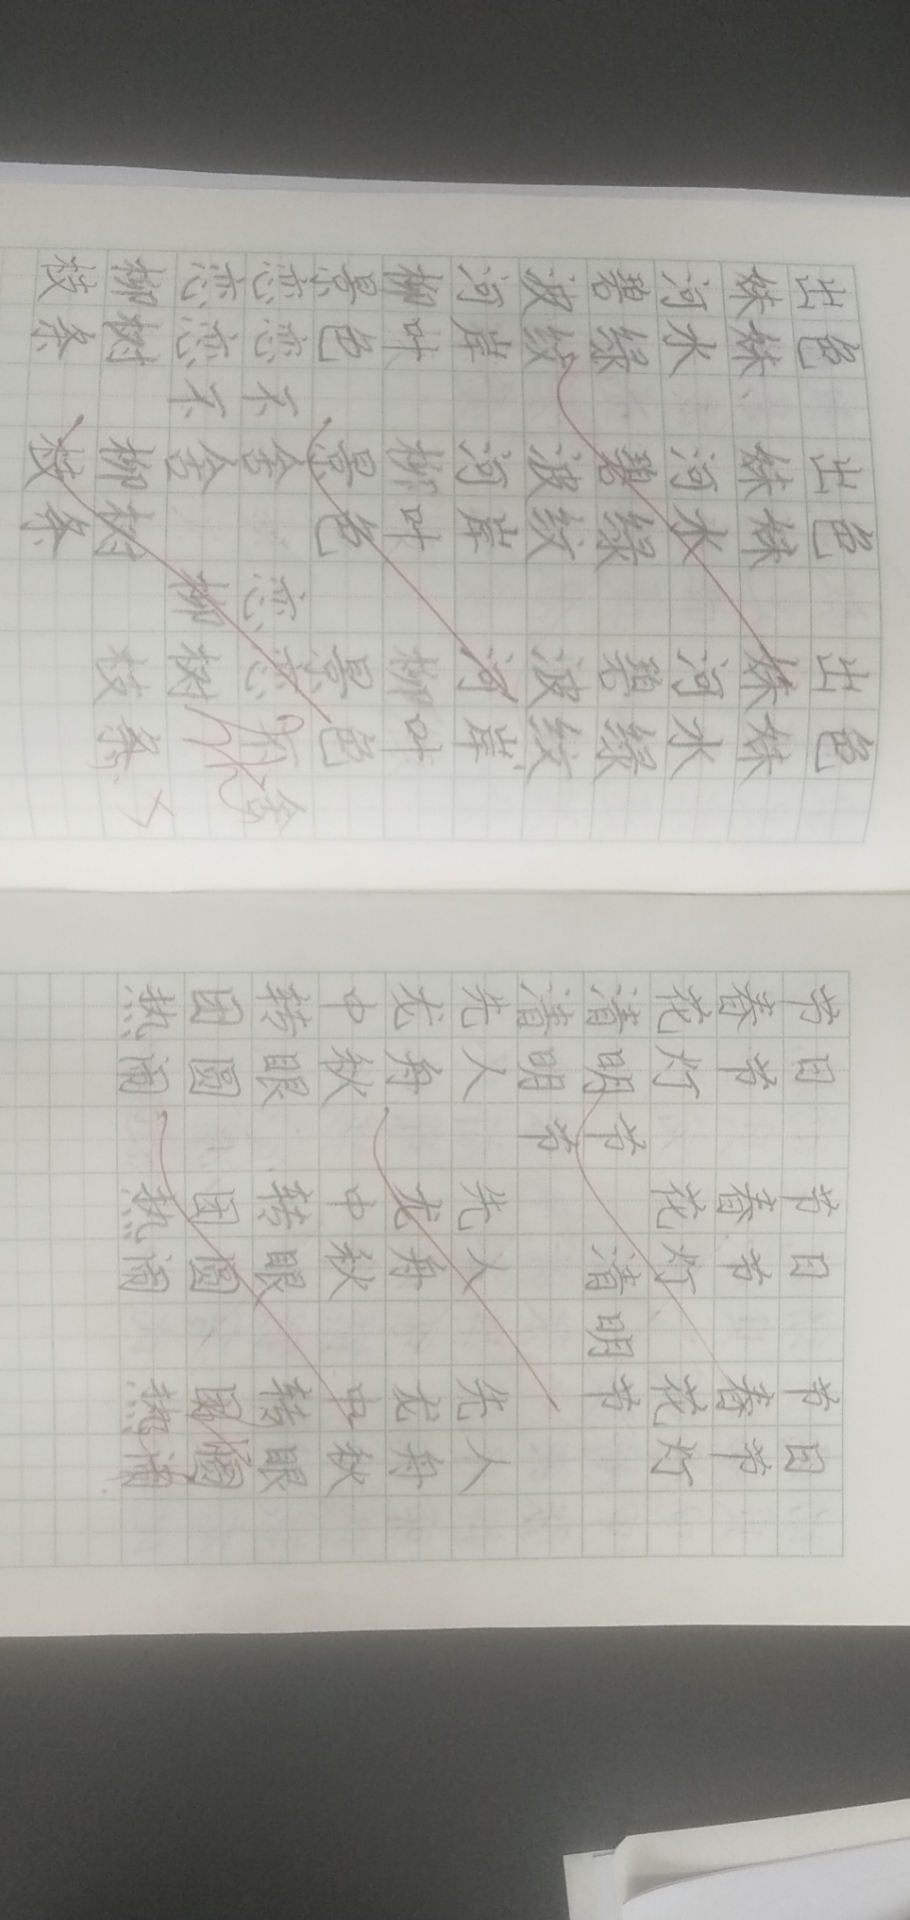 出色 出色 出色
妹妹 妹妹 妹妹
河水 河水 河水
碧绿 碧绿 碧绿
波纹 波纹 波纹
河岸 河岸 河岸
柳叶 柳叶 柳叶
景色 景色 景色
恋恋不舍 恋恋不舍
恋恋不舍 柳树
柳树 柳树 枝条
枝条 枝条
节日 节日 节日
春节 春节 春节
花灯 花灯 花灯
清明节 清明节
清明节
先人 先人 先人
龙舟 龙舟 龙舟
中秋 中秋 中秋
转眼 转眼 转眼
团圆 团圆 团圆
热闹 热闹 热闹